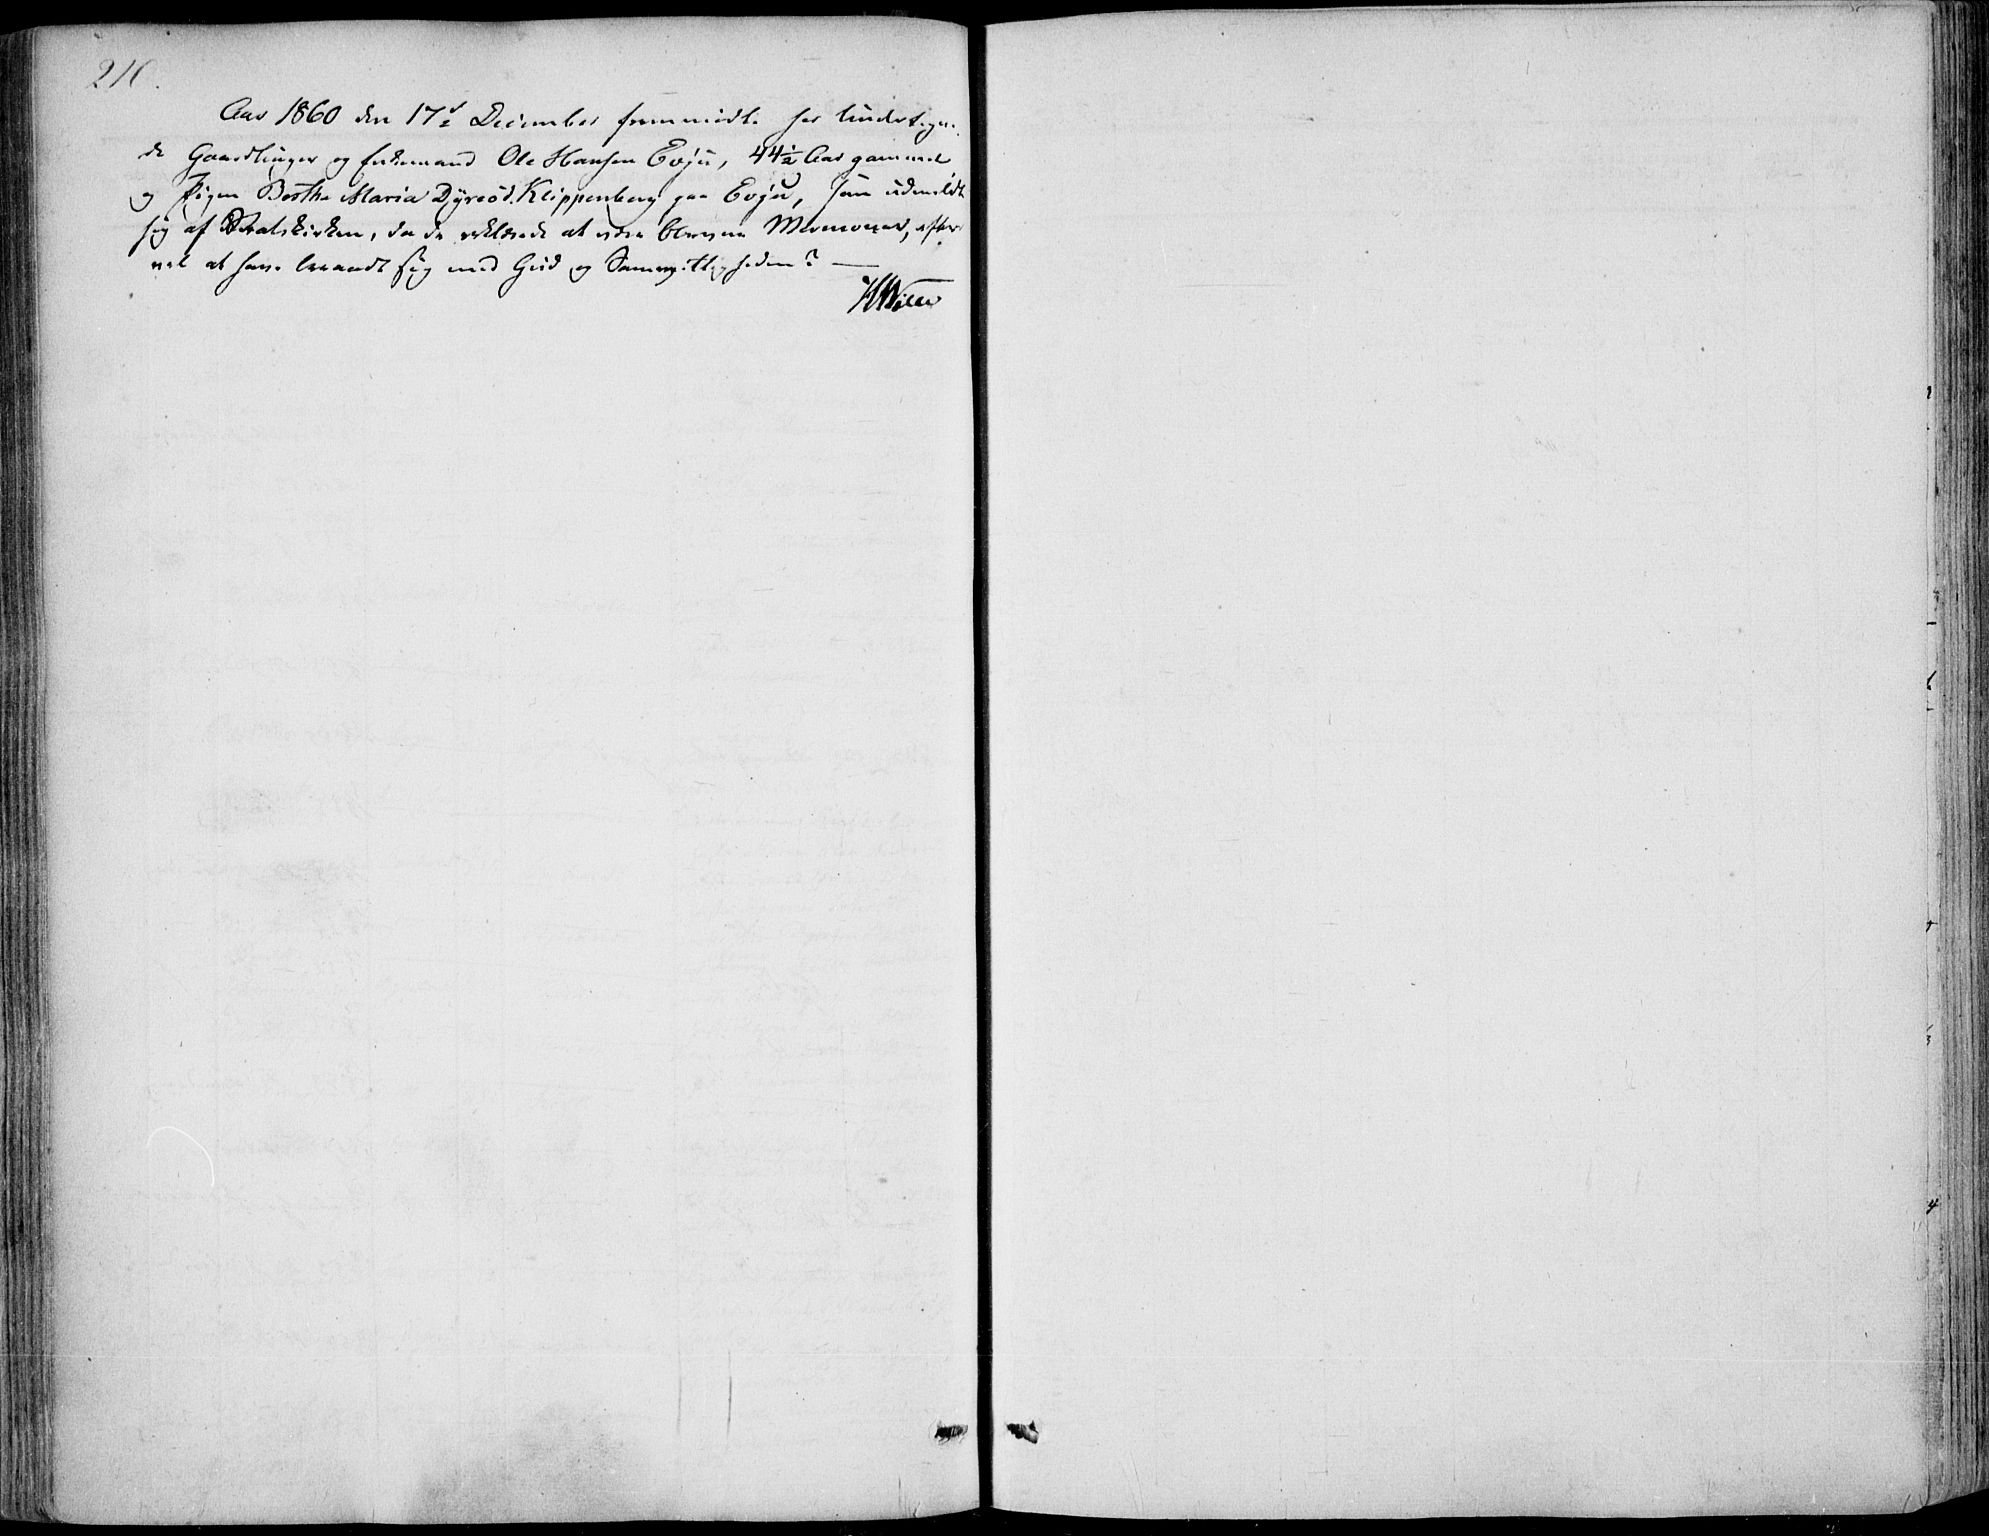 210.
Aar 1860 den 17de December fremmødte for Undertegne-
de Gaardbruger og Enkemand Ole Hansen Evju, 44½ Aar gammel
og Pigen Berthe Maria Dyresd. Klippenberg paa Evju, som udmeldte
sig af Statskirken, da de erklærede at være blevne Mormoner, efter
vel at have beraadt sig med Gud og Samvittigheden? —